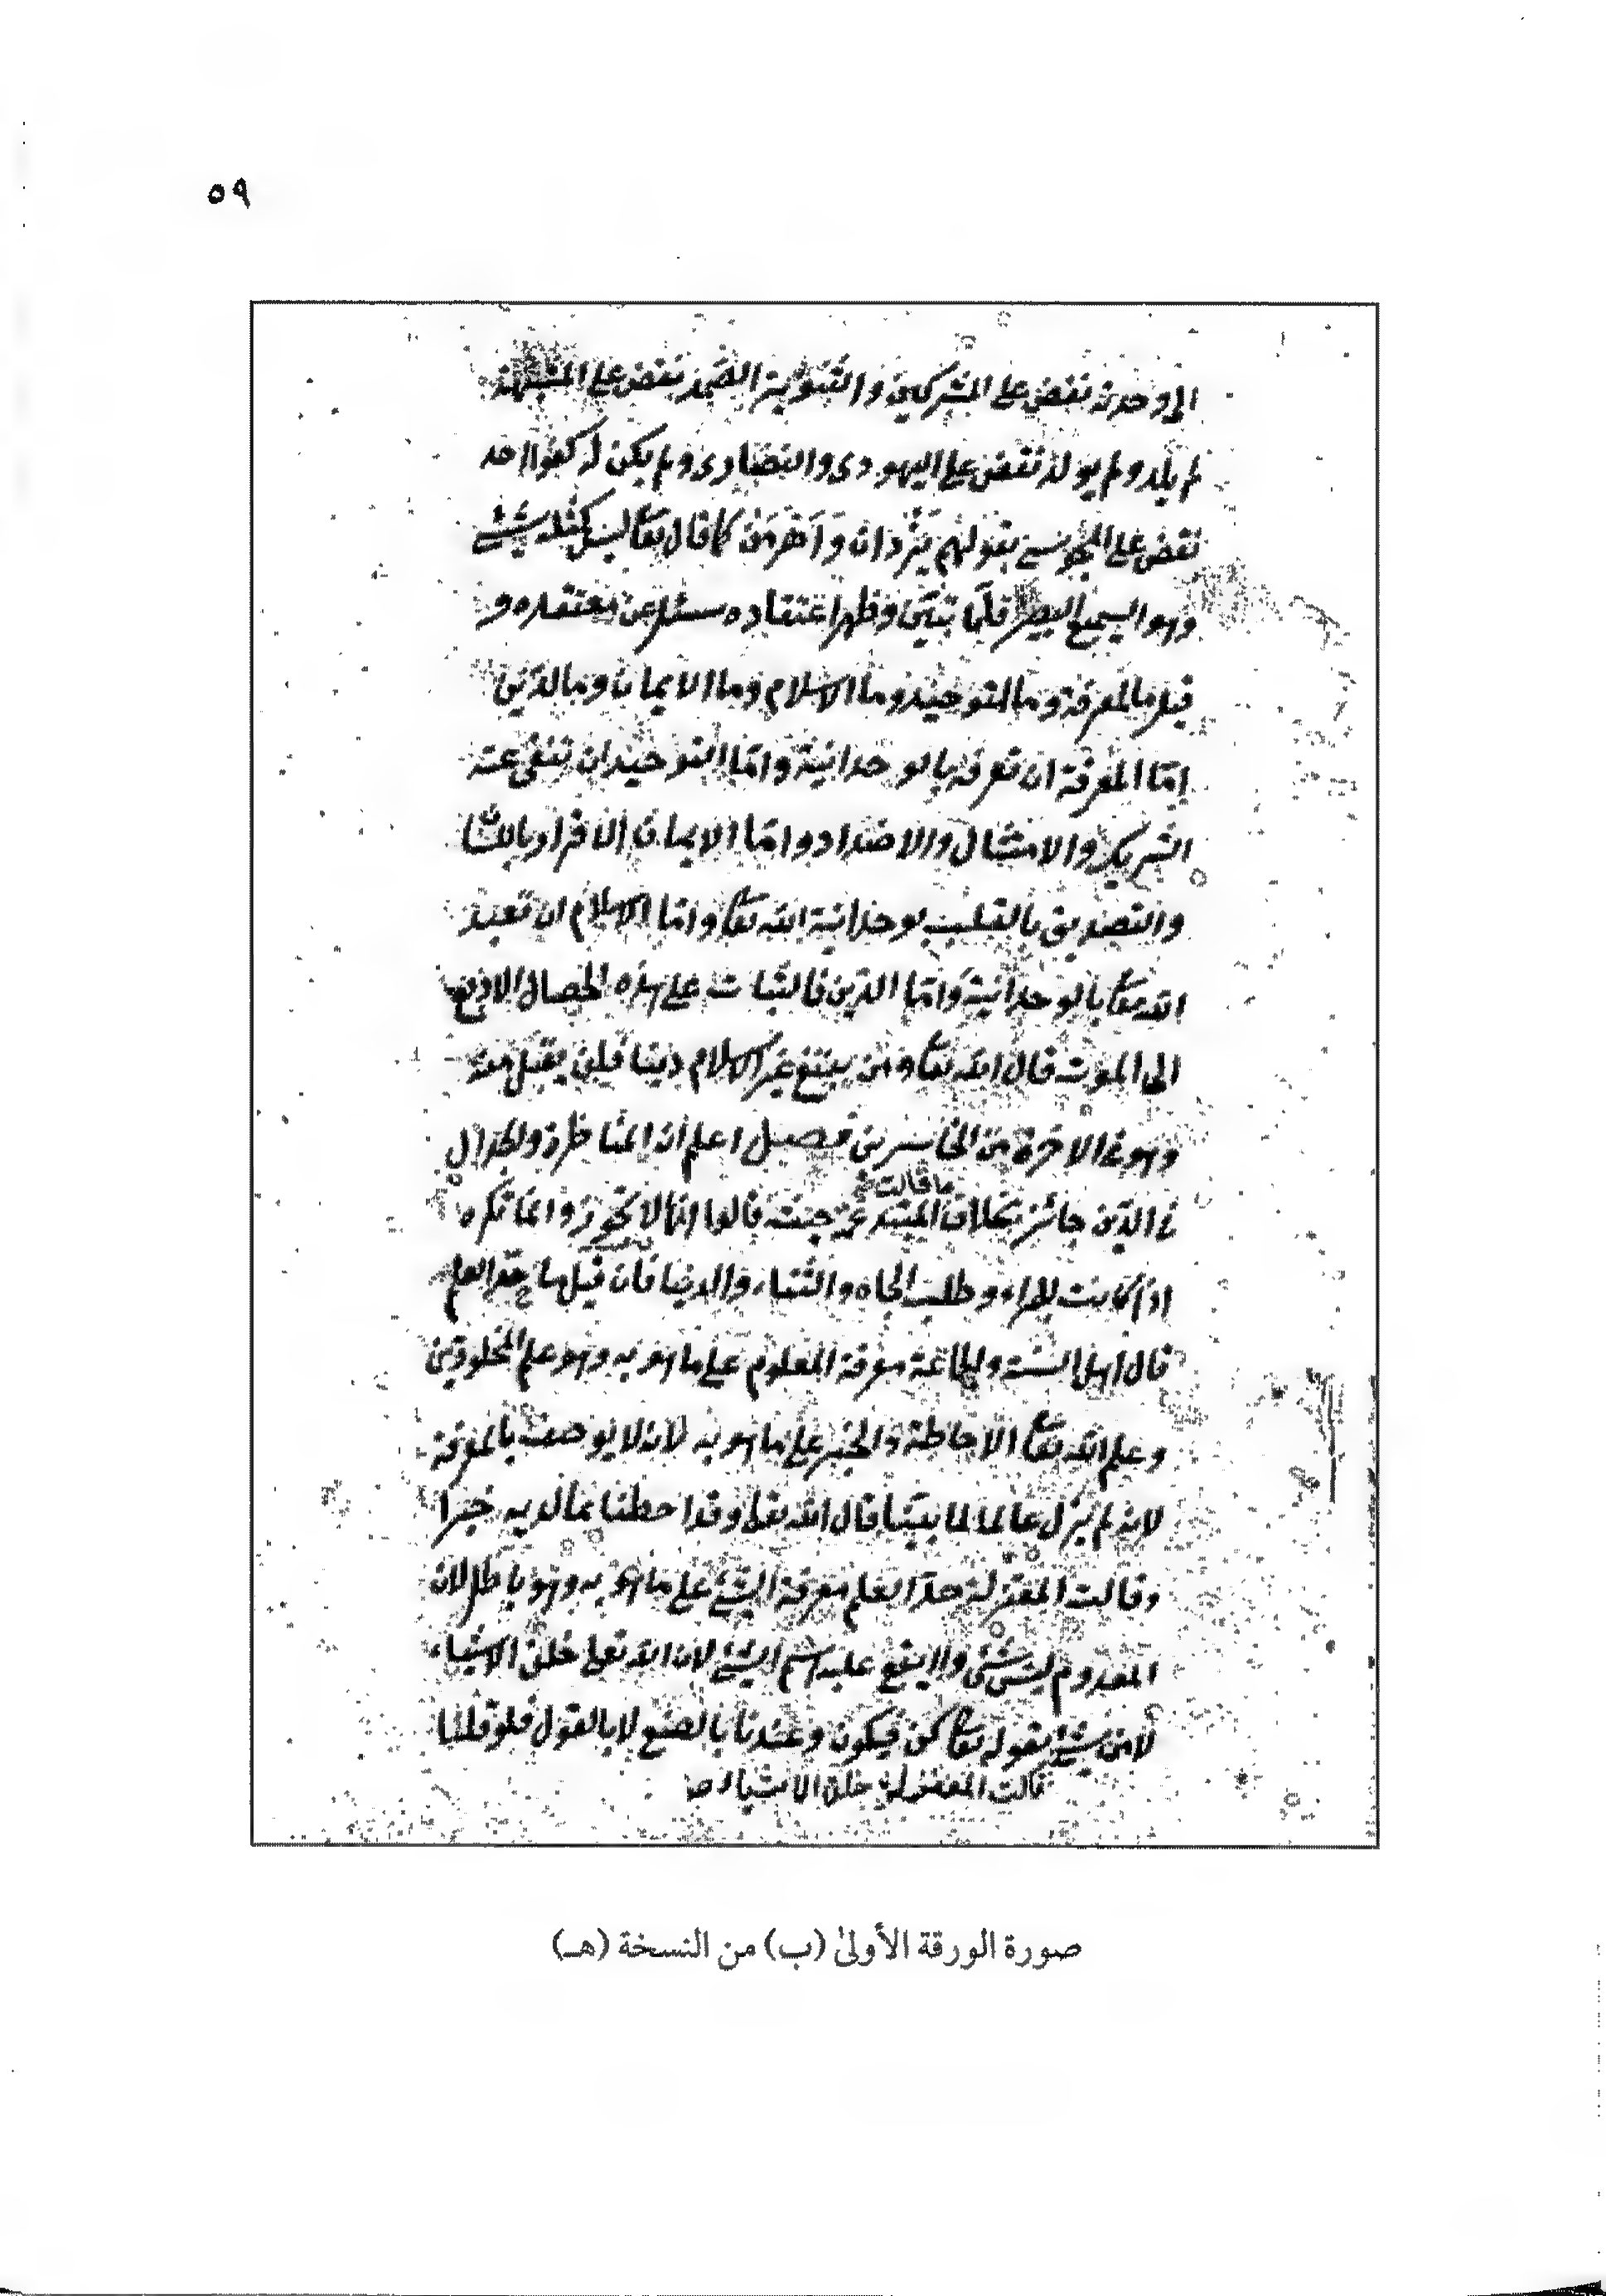 ٥٩
الى وحدته نقض على المشركين والثنوية الصمد نقض على المشبهة
لم يلد ولم يولد نقض على اليهودى والنصارى ولم يكن له كفوا احد
نقض على المجوسى بقولهم يزدان وآهرمن كما قال تعا ليس كمثله شئ
وهو السميع البصير فلما تبين وظهر اعتقاده سئل عن معتقده و
قيل ما المعرفة وما التوحيد وما الاسلام وما الايمان وما الدين
امّا المعرفة ان تعرفه بالوحدانية وامّا التوحيد ان تنفى عنه
الشريك والامثال والاضداد وامّا الايمان الاقرار باللسا
والتصديق بالقلب بوحدانية الله تعا وامّا الاسلام ان تعبد
الله تعا بالوحدانية وَامّا الدين فالثبات على هذه الخصال الاربع
الى الموت قال الله تعا ومن يبتغ غير الاسلام دينا فلن يقبل منه
وهو فى الاخرة من الخاسرين فصل اعلم ان المناظرة والجدال
ما قالت
فى الدين جائز بخلاف المبتدعة حيث قالوا انها لا تجوز وانما تكره
اذا كانت للمراء وطلب الجاه والثناء والدنيا فان قيل ما حدّ العلم
قال اهل السنة والجماعة معرفة المعلوم على ما هو به وهو علم المخلوقين
وعلم الله تعا الاحاطة والخبر على ما هو به لانه لا يوصف بالمعرفة
لانه لم يزل عالما لما بيّنا قال الله تعالى وقد احطنا بما لديه خبرا
وقالت المعتزلة حدّ العلم معرفة الشئ على ما هو به وهو باطل لان
المعدوم ليس شئ ولا يقع عليه اسم الشئ لان الله تعالى خلق الاشياء
لا من شئ بقوله تعا كن فيكون وعندنا بالصنع لا بالقول فلو قلنا
قالت المعتزلة خلق الاشياء
صورة الورقة الأولىٰ (ب) من النسخة (هـ)